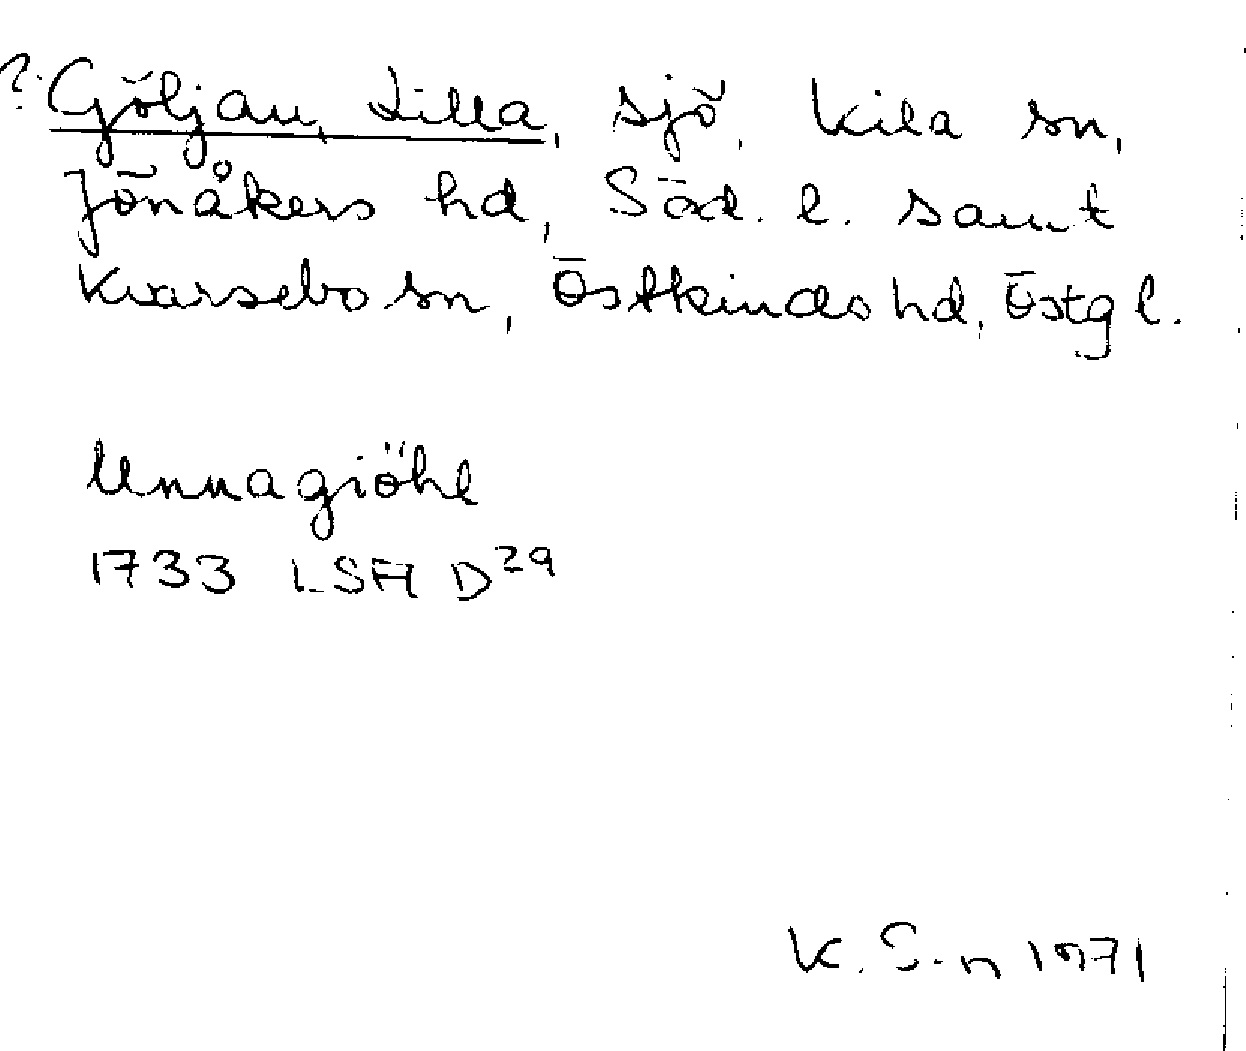 ? Göljan, Lilla, sjö, Kila sn,
Jönåkers hd, Söd. l. samt
Kvarsebo sn, Östkinds hd, Östg l.
Unnagiöhl
1733 LSA D29
K. S-n 1971